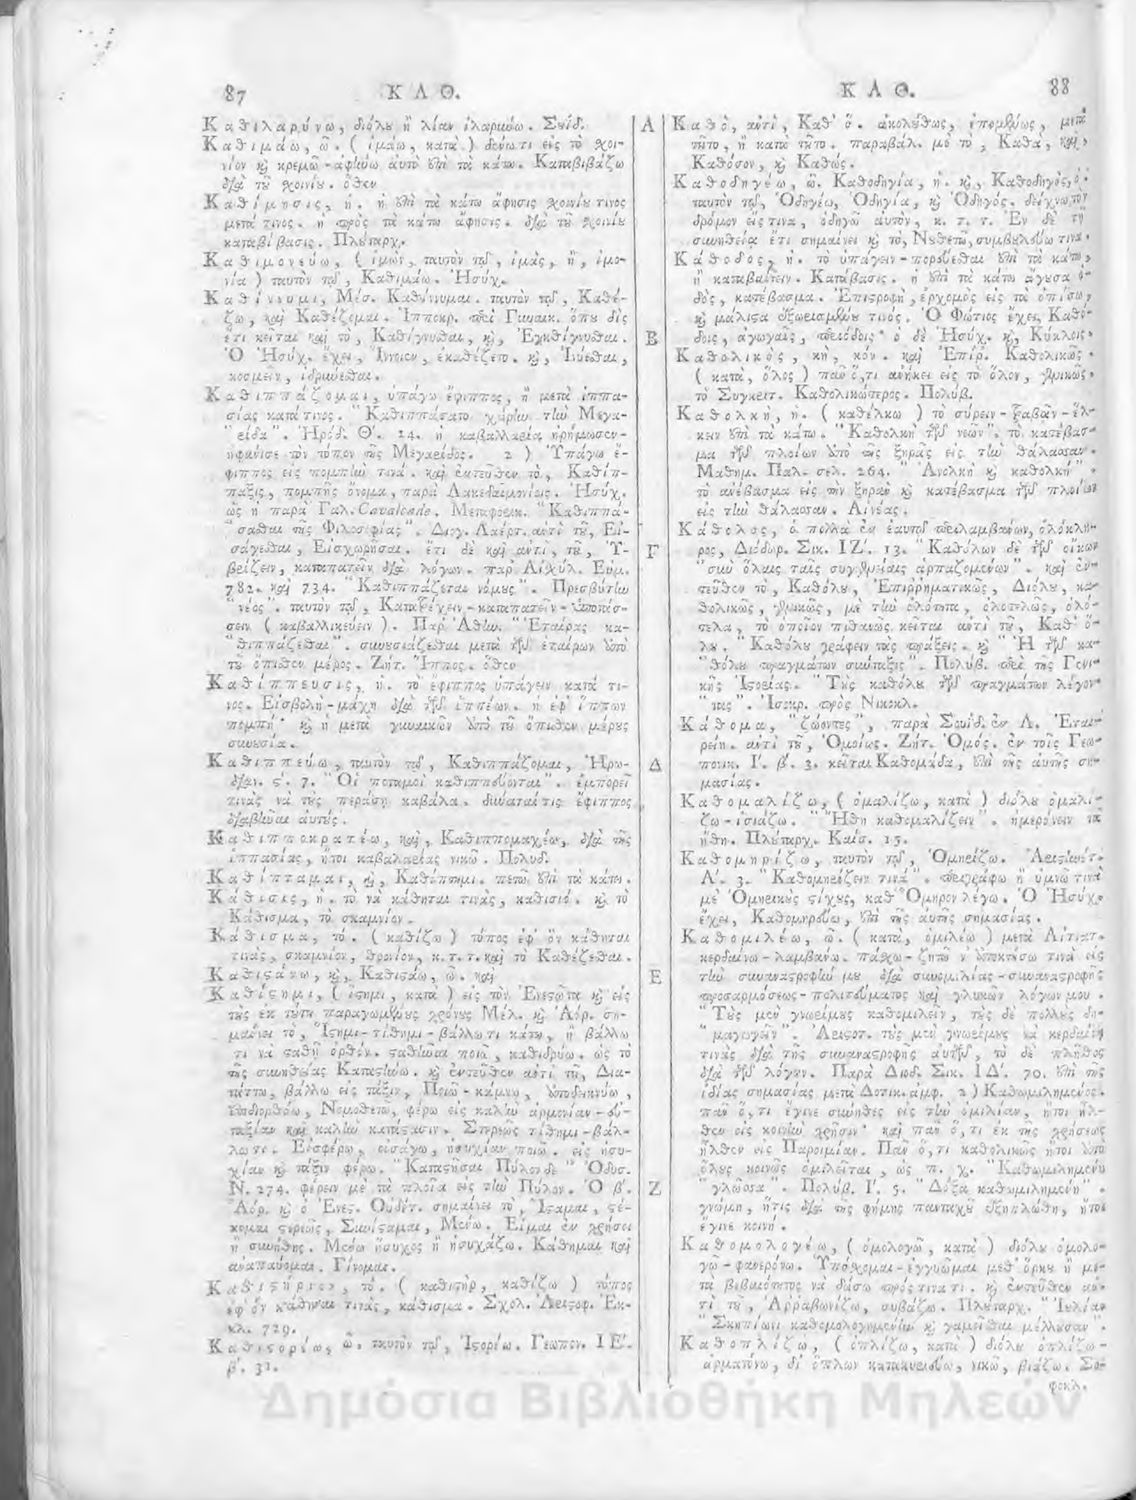 87 ΚΑΘ.
Καθιλαρύνω, διόλου ἢ λίαν ἱλαρύνω. Σουΐδ.
Καθιμάω, ῶ. ( ἱμάω, κατὰ ) δένω τι εἰς τὸ χοι-
νίον καὶ κρεμῶ - ἀφίνω αὐτὸ ἐπὶ τὰ κάτω. Καταβιβάζω
διὰ τοῦ χοινίου. ὅθεν
Καθίμησις, ἡ. ἡ ἐπὶ τὰ κάτω ἄφησις χοινίου τινος
μετά τινος. ἡ πρὸς τὰ κάτω ἄφησις. διὰ τοῦ χοινίου
καταβίβασις. Πλούταρχ.
Καθιμονεύω, ( ἱμῶν, ταυτὸν τῷ, ἱμάς, ἢ, ἱμο-
νία ) ταυτὸν τῷ, Καθιμάω. Ἡσύχ.
Καθίννυμι, Μέσ. Καθίννυμαι. ταυτὸν τῷ, Καθέ-
ζω, καὶ Καθέζομαι. Ἱπποκρ. περὶ Γυναικ. ὅπου δὶς
ἔτι κεῖται καὶ τὸ, Καθίγνυσθαι, καὶ, Ἐγκαθίγνυσθαι.
Ὁ Ἡσύχ. ἔχει, Ἵννοιεν, ἐκαθέζετο. καὶ, Ἵνύεσθαι,
κοσμεῖν, ἱδρύεσθαι.
Καθιππάζομαι, ὑπάγω ἔφιππος, ἢ μετὰ ἱππα-
σίας κατά τινος. " Καθιππάσατο χώρην τὴν Μεγα-
" ρίδα ". Ἡρόδ. Θ'. 14. ἡ καβαλλαρία ἠρήμωσεν -
ἠφάνισε τὸν τόπον τῆς Μεγαρίδος. 2 ) Ὑπάγω ἔ-
φιππος εἰς πομπὴν τινά. καὶ ἐντεῦθεν τὸ, Καθίπ-
παξις, πομπῆς ὄνομα, παρὰ Λακεδαιμονίοις. Ἡσύχ.
ὡς ἡ παρὰ Γαλ. Cavalcade. Μεταφορικ. " Καθιππά-
" σασθαι τῆς Φιλοσοφίας ". Διογ. Λαέρτ. αὐτὶ τοῦ, Εἰ-
σάγεσθαι, Εἰσχωρῆσαι. ἔτι δὲ καὶ αὐτὶ, τοῦ, Ὑ-
βρίζειν, καταπατεῖν διὰ λόγων. παρ' Αἰσχύλ. Εὐμ.
782. καὶ 734. " Καθιππάζεται νόμους ". Πρεσβύτιν
" νέος ". ταυτὸν τῷ, Κατατρέχειν - καταπατεῖν - ὑποτάσ-
σειν ( καβαλλικεύειν ). Παρ' Ἀθήν. " Ἑταίρας κα-
" θιππάζεσθαι ". συνουσιάζεσθαι μετὰ τῶν ἑταίρων ἀπὸ
τοῦ ὄπισθεν μέρος. Ζήτ. Ἵππος. ὅθεν
Καθίππευσις, ἡ. τὸ ἔφιππος ὑπάγειν κατά τι-
νος. Εἰσβολὴ - μάχη διὰ τῶν ἱππέων. ἡ ἐφ' ἵππων
πομπή· καὶ ἡ μετὰ γυναικῶν ἀπὸ τοῦ ὄπισθεν μέρους
συνουσία.
Καθιππεύω, ταυτὸν τῷ, Καθιππάζομαι, Ἡρω-
διαν. ϛ'. 7. " Οἱ ποταμοὶ καθιππεύονται ". ἐμπορεῖ
τινὰς νὰ τοὺς περάσῃ καβάλα. δύναταί τις ἔφιππος
διαβῆναι αὐτούς.
Καθιπποκρατέω, καὶ, Καθιππομαχέω, διὰ τῆς
ἱππασίας, ἤτοι καβαλαρίας νικῶ. Πολυδ.
Καθίπταμαι, καὶ, Καθίπτημι. πετῶ ἐπὶ τὰ κάτω.
Κάθισις, ἡ. τὸ νὰ κάθηται τινάς, καθισιό. καὶ τὸ
Κάθισμα, τὸ σκαμνίον.
Κάθισμα, τό. ( καθίζω ) τόπος ἐφ' ὃν κάθηται
τινάς, σκαμνίον, θρονίον, κ. τ. τ. καὶ τὸ Καθέζεσθαι.
Καθιστάνω, καὶ, Καθιστάω, ῶ. καὶ
Καθίστημι, ( ἵστημι, κατὰ ) εἰς τὸν Ἐνεστῶτα καὶ εἰς
τοὺς ἐκ τούτου παραγωμένους χρόνους Μέλ. καὶ Ἀόρ. ση-
μαίνει τὸ, Ἵστημι - τίθημι - βάλλω τι κάτω, ἢ βάλλω
τι νὰ σταθῇ ὀρθόν. σταθίωνα ποιῶ, καθιδρύω. ὡς τὸ
τῆς συνηθείας Καταστήνω. καὶ ἐντεῦθεν αὐτὶ τοῦ, Δια-
τάττω, βάλλω εἰς τάξιν, Ποιῶ - κάμνω, ἀποδεικνύω,
ἐπιδιορθόω, Νομοθετῶ, φέρω εἰς καλὴν ἁρμονίαν - εὐ-
ταξίαν καὶ καλὴν κατάστασιν. Στερεῶς τίθημι - βάλ-
λω τι. Εἰσφέρω, εἰσάγω, ἡσυχίαν ποιῶ. εἰς ἡσυ-
χίαν καὶ τάξιν φέρω. " Καταστῆσαι Πύλονδε " Ὀδυσ.
Ν. 274. φέρειν με τὰ πλοῖα εἰς τὴν Πύλον. Ὁ β'.
Ἀόρ. καὶ ὁ Ἐνεσ. Οὐδέτ. σημαίνει τὸ, Ἵσταμαι, στέ-
κομαι στερεῶς, Συνίσταμαι, Μένω. Εἶμαι ἐν χρήσει
ἢ συνήθης. Μένω ἥσυχος ἢ ἡσυχάζω. Κάθημαι καὶ
ἀναπαύομαι. Γίνομαι.
Καθιστήριον, τό. ( καθιστὴρ, καθίζω ) τόπος
ἐφ' ὃν κάθηται τινάς, κάθισμα. Σχολ. Ἀριστοφ. Ἐκ-
κλ. 729.
Καθιστορέω, ῶ. ταυτὸν τῷ, Ἱστορέω. Γεωπον. ΙΕ'.
β'. 31.
Α
Β
Γ
Δ
Ε
Ζ
ΚΑΘ. 88
Καθὸ, αὐτὶ, Καθ' ὅ. ἀκολούθως, ἑπομένως, μετὰ
τοῦτο, ἢ κατὰ τοῦτο. παραβάλ. μὲ τὸ, Καθὰ, καὶ,
Καθόσον, καὶ Καθώς.
Καθοδηγέω, ῶ. Καθοδηγία, ἡ. καὶ, Καθοδηγός, ὁ.
ταυτὸν τῷ, Ὁδηγέω, Ὁδηγία, καὶ Ὁδηγός. δείχνω τὸν
δρόμον εἴς τινα, ὁδηγῶ αὐτόν, κ. τ. τ. Ἐν δὲ τῇ
συνηθείᾳ ἔτι σημαίνει καὶ τὸ, Νουθετῶ, συμβουλεύω τινά.
Κάθοδος, ἡ. τὸ ὑπάγειν - πορεύεσθαι ἐπὶ τὰ κάτω,
ἢ καταβαίνειν. Κατάβασις. ἡ ἐπὶ τὰ κάτω ἄγουσα ὁ-
δός, κατέβασμα. Ἐπιστροφὴ, ἐρχομὸς εἰς τὰ ὀπίσω,
καὶ μάλιστα ἐξωρισμένου τινός. Ὁ Φώτιος ἔχει, Καθό-
δοις, ἀγωγαῖς, περιόδοις· ὁ δὲ Ἡσύχ. καὶ, Κύκλοις.
Καθολικός, κὴ, κόν. καὶ Ἐπίρ. Καθολικῶς.
( κατά, ὅλος ) πᾶν ὅ,τι ἀνήκει εἰς τὸ ὅλον, γενικῶς.
τὸ Συγκριτ. Καθολικώτερος. Πολύβ.
Καθολκή, ἡ. ( καθέλκω ) τὸ σύρειν - τραβᾶν - ἕλ-
κειν ἐπὶ τὰ κάτω. " Καθολκὴ τῶν νεῶν ". τὸ κατέβασ-
μα τῶν πλοίων ἀπὸ τῆς ξηρᾶς εἰς τὴν θάλασσαν.
Μαθημ. Παλ. σελ. 264. " Ἀνολκὴ καὶ καθολκὴ ".
τὸ ἀνέβασμα εἰς τὴν ξηρὰν καὶ κατέβασμα τῶν πλοίων
εἰς τὴν θάλασσαν. Αἰνέας.
Κάθολος, ὁ πολλὰ ἐν ἑαυτῷ περιλαμβάνων, ὁλόκλη-
ρος, Διόδωρ. Σικ. ΙΖ'. 13. " Καθόλων δὲ τῶν οἴκων
" σὺν ὅλαις ταῖς συγγενείαις ἁρπαζομένων ". καὶ ἐν-
τεῦθεν τὸ, Καθόλου, Ἐπιρρηματικῶς, Διόλου, κα-
θολικῶς, γενικῶς, με τὴν ὁλότητα, ὁλοτελῶς, ὁλό-
τελα, τὸ ὁποῖον πιθανῶς κεῖται αὐτὶ τοῦ, Καθ' ὅ-
λου. " Καθόλου γράφειν τὰς πράξεις. καὶ " Ἡ τῶν κα-
" θόλου πραγμάτων σύνταξις ". Πολύβ. περὶ τῆς Γενι-
κῆς Ἱστορίας. " Τοὺς καθόλου τῶν πραγμάτων λέγον-
" τας ". Ἰσοκρ. πρὸς Νικοκλ.
Κάθομα, " ζώοντες ", παρὰ Σουΐδ. ἐν Λ. Ἑται-
ρείη. αὐτὶ τοῦ, Ὁμοίως. Ζήτ. Ὁμός. ἐν τοῖς Γεω-
πονικ. Ι'. β'. 3. κεῖται Καθομάδα, ἐπὶ τῆς αὐτῆς ση-
μασίας.
Καθομαλίζω, ( ὁμαλίζω, κατὰ ) διόλου ὁμαλί-
ζω - ἰσιάζω. " Ἤθη καθομαλίζειν ". ἡμερόνειν τὰ
ἤθη. Πλούταρχ. Καίσ. 15.
Καθομηρίζω, ταυτὸν τῷ, Ὁμηρίζω. Ἀρισταινέτ.
Α'. 3. " Καθομηρίζειν τινὰ ". περιγράφω ἢ ὑμνῶ τινὰ
με Ὁμηρικοὺς στίχους, καθ' Ὅμηρον λέγω. Ὁ Ἡσύχ.
ἔχει, Καθομηρεύω, ἐπὶ τῆς αὐτῆς σημασίας.
Καθομιλέω, ῶ. ( κατὰ, ὁμιλέω ) μετὰ Αἰτιατ.
κερδαίνω - λαμβάνω. πάσχω - ζητῶ ν' ἀποκτήσω τινὰ εἰς
τὴν συναναστροφήν μου διὰ συνομιλίας - συναναστροφῆς
προσαρμόσεως - πολιτεύματος καὶ γλυκῶν λόγων μου.
" Τοὺς μὲν γνωρίμους καθομιλεῖν, τοὺς δὲ πολλοὺς δη-
" μαγωγεῖν ". Ἀριστοτ. τοὺς μὲν γνωρίμους νὰ κερδαίνῃ
τινὰς διὰ τῆς συναναστροφῆς αὐτῶν, τὸ δὲ πλῆθος
διὰ τῶν λόγων. Παρὰ Διοδ. Σικ. ΙΔ'. 70. ἐπὶ τῆς
ἰδίας σημασίας μετὰ Δοτικ. ἀμφ. 2 ) Καθωμιλημένος.
πᾶν ὅ,τι ἔγινε σύνηθες εἰς τὴν ὁμιλίαν, ἤτοι ἦλ-
θεν εἰς κοινὴν χρῆσιν· καὶ πᾶν ὅ,τι ἐκ τῆς χρήσεως
ἦλθεν εἰς Παροιμίαν. Πᾶν ὅ,τι καθολικῶς ἤτοι ἀπὸ
ὅλους κοινῶς ὁμιλεῖται, ὡς π. χ. " Καθωμιλημένη
" γλῶσσα ". Πολύβ. Ι'. 5. " Δόξα καθωμιλημένη ".
γνώμη, ἥτις διὰ τῆς φήμης πανταχοῦ ἐξηπλώθη, ἤτοι
ἔγινε κοινή.
Καθομολογέω, ( ὁμολογῶ, κατὰ ) διόλου ὁμολο-
γῶ - φανερόνω. Ὑπόσχομαι - ἐγγυῶμαι μεθ' ὅρκου ἢ με-
τὰ βεβαιότητος νὰ δώσω πρός τινά τι. καὶ ἐντεῦθεν αὐ-
τὶ τοῦ, Ἀρραβωνίζω, συβάζω. Πλούταρχ. " Ἰουλίαν
" Σκηπίωνι καθομολογημένην καὶ γαμεῖσθαι μέλλουσαν ".
Καθοπλίζω, ( ὁπλίζω, κατὰ ) διόλου ὁπλίζω -
ἁρματόνω, δι' ὅπλων κατακυριεύω, νικῶ, βιάζω. Σο-
φοκλ.
Δημόσια Βιβλιοθήκη Μηλεών